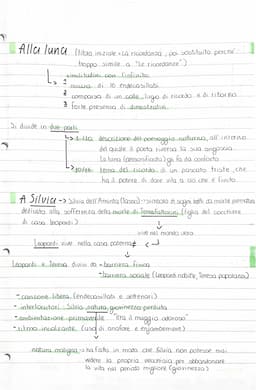 Alla luna (titolo iniziale: La ricordanza, poi sostituito perché
troppo simile a "Le ricordanze")
similitudini con l'infinito
1 misura di 16 endecasillabi
2 comparsa di un colle, luogo di ricordo e di ritorno
3 forte presenza di dimostrativi
Si divide in due parti
1-10a: descrizione del paesaggio notturno, all'interno
del quale il poeta riversa la sua angoscia
La luna (personificata) gli fa da conforto
tema del ricordo di un passato triste che
ha il potere di dare vita a ciò che è finito
A Silvia → Silvia dell'Aminta (Tasso) → ritratto di sogni rotti da morte prematura
dell'autore alla sofferenza della morte di Teresa Fattorini (figlia del cocchiere
di casa Leopardi)
vive nel mondo vero
Leopardi vive nella casa paterna
Leopardi e Teresa divisi da → barriera fisica
barriera sociale (Leopardi nobile, Teresa popolana)
- canzone libera (endecasillabi e settenari)
- interlocutori: Silvia, natura, giovinezza perduta
- ambientazione primaverile "era il maggio odoroso"
- ritmo incalzante (uso di anafore e enjambement)
natura maligna → ha fatto in modo che Silvia non potesse mai
vedere la propria vecchiaia per abbandonare
la vita nel periodo migliore (giovinezza)